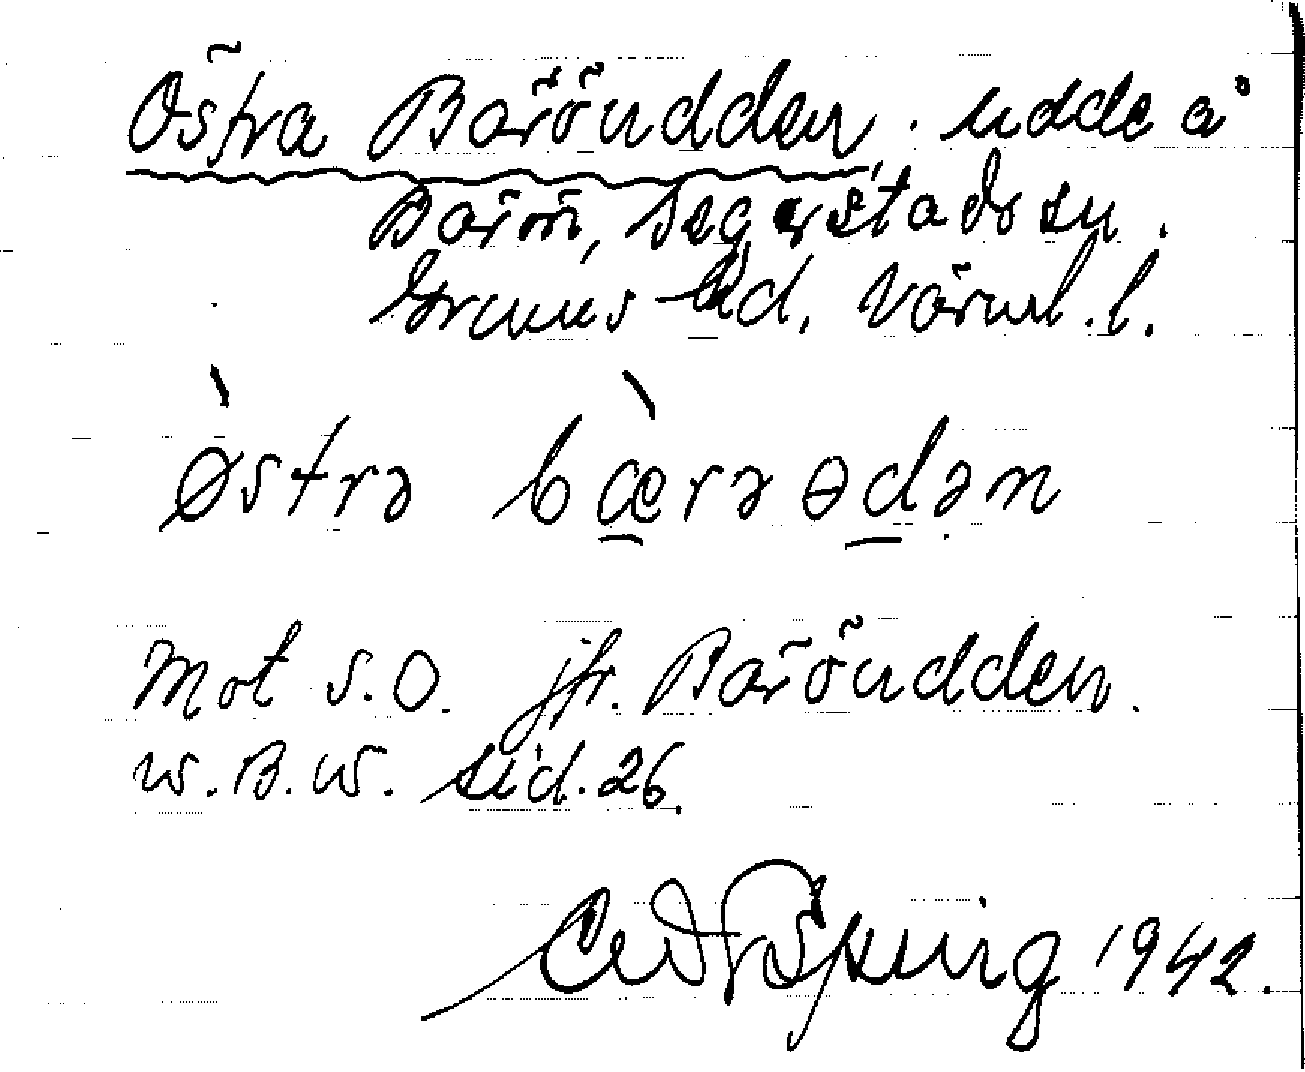 Östra Bäröudden, udde å
Bärön, Segerstads sn.
Grums hd, Värml. l.
østrə bærəɵdən
Mot S.O. jfr. Bäröudden.
W.B.W. sid. 26.
1942.